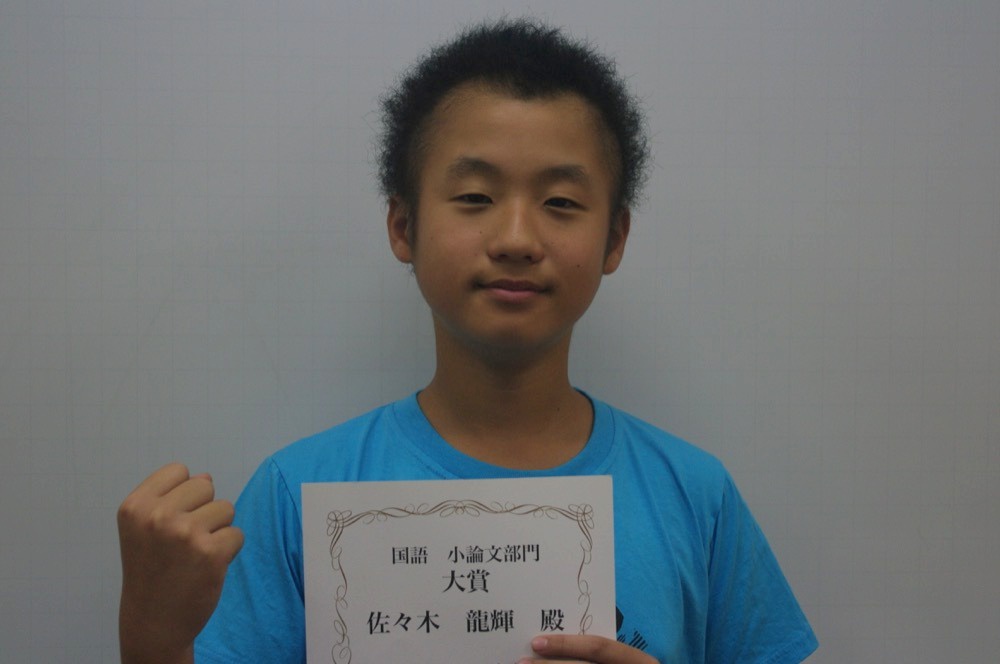 国語　小論文部門
大賞
佐々木　龍輝　殿